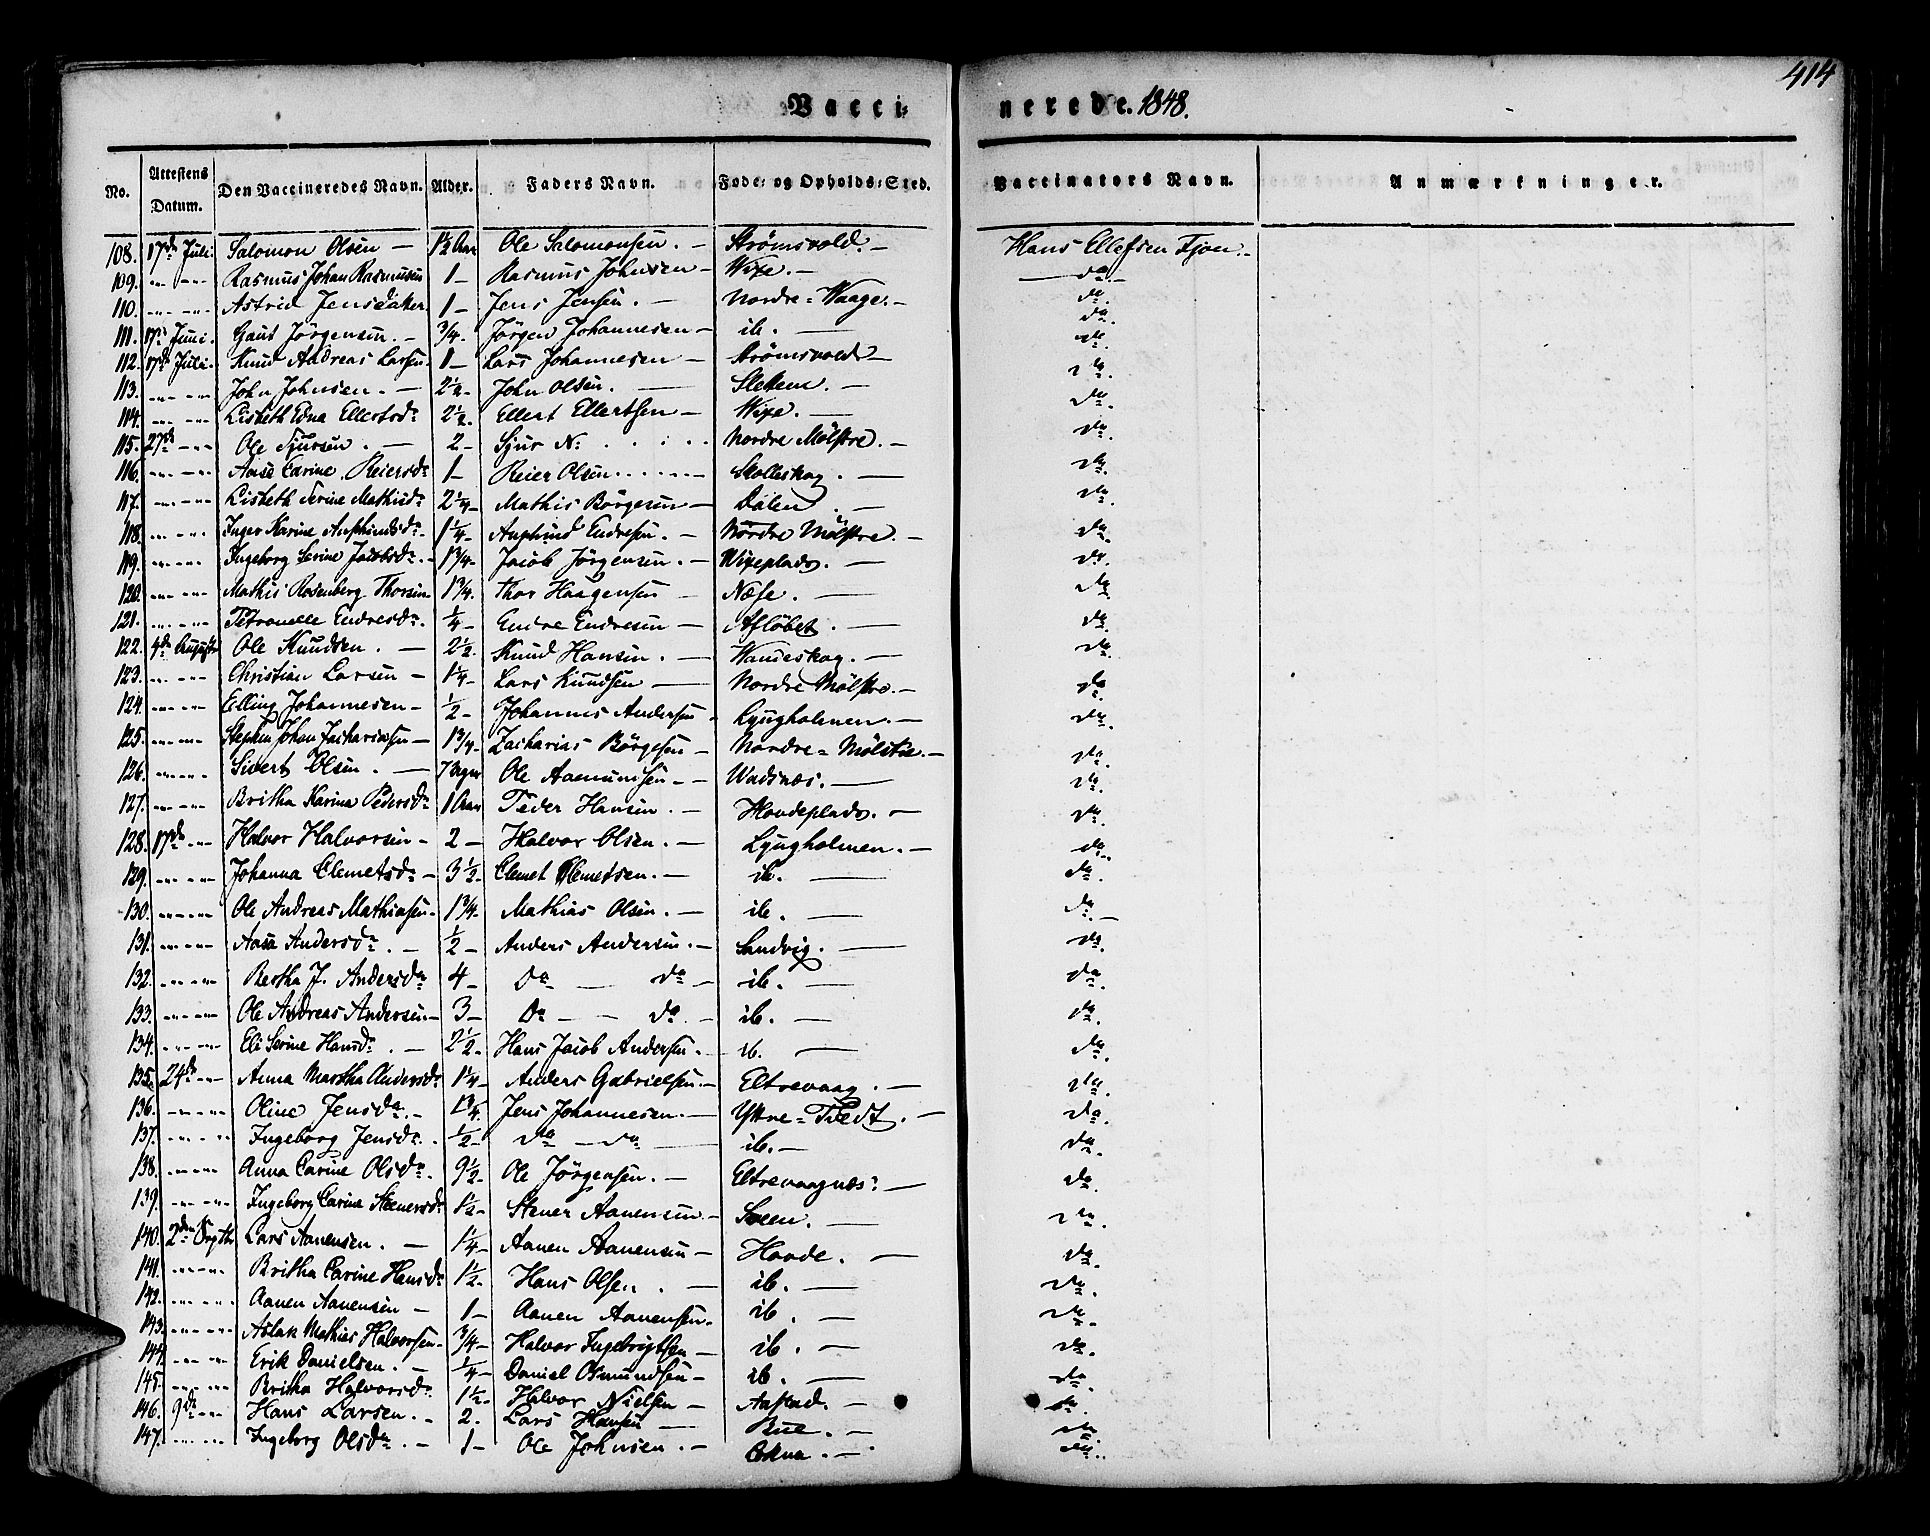 414
Vacci- nerede. 1848.
No. Attestens Datum. Den Vaccineredes Navn. Alder. Faders Navn. Føde- og Opholds-Sted. Vaccinators Navn. Anmærkninger.
108. 17de Juli Salomon Olsen — 1½ Aar Ole Salomonsen. — Strømsvold. — Hans Ellefsen Fjon. —
109. " " " Rasmus Johan Rasmusen 1 — Rasmus Johnsen — Wixe. — do.
110. " " " Astrid Jensdatter 1 — Jens Jensen. — Nordre-Waage. — do.
111. 17de Juni. Gaut Jörgensen. — 3/4. Jörgen Johannesen — ib. — do.
112. 17de Juli. Knud Andreas Larsen. 1 — Lars Johannesen — Strømsvold — do.
113. " " " John Johnsen. — 2½ - John Olsen. — Slettem. — do.
114. " " " Lisbeth Edna Ellertsdr 2½. Ellert Ellertsen — Wixe. — do.
115. 27de " " Ole Sjursen. — 2 - Sjur N: . . . . Nordre Mölstre. — do.
116. " " " Aase Carine Reiersdr 1 — Reier Olsen. . . . Skolleskog. — do.
117. " " " Lisbeth Serine Mathisdr 2¼ - Mathis Börgesen — Dalen. — do.
118. " " " Inger Karine Anfhindsdr. 1¼ - Endresen. — Nordre Mölstre. — do.
119. " " " Ingeborg Serine Jacobsdr. 1¾ - Jacob Jörgensen. — Wixeplads. — do.
120. " " " Mathis Rosenberg Thorsen 1¾. Thor Haagensen — Næse. — do.
121. " " " Petronelle Endresdr. ¼ Endre Endresen — Aflöbet. — do.
122. 4de August Ole Knudsen. — 2½. Knud Hansen. — Wandeskog. — do.
123. " " " Christian Larsen — 1¼ - Lars Knudsen — Nordre Mölstre. — do.
124. " " " Elling Johannesen — ½ - Johannes Andersen - Lyngholmen. — do.
125. " " " Stephen Johan Zachariasen — 1¾ - Zacharias Börgesen — Nordre-Mölstre. — do.
126. " " " Sivert Olsen. — 7 Ole Aamundsen — Wadsnæs. — do.
127. " " " Britha Karina Pedersdr 1 Aar Peder Hansen. — Hovdeplads. — do.
128. 17de " " Halvor Halvorsen — 2 — Halvor Olsen. — Lyngholmen. — do.
129. " " " Johanna Clemetsdr — 3½ - Clemet Clemetsen. — ib. — do.
130. " " " Ole Andreas Mathiasen. 1¾ - Mathias Olsen. — ib. — do.
131. " " " Aasa Andersdr. — ½ - Anders Andersen. — Sandvig. — do.
132. " " " Bertha J. Andersdr 4 - Do — do — ib. — do.
133. " " " Ole Andreas Andersen — 3 - Do — do. — ib. — do.
134. " " " Eli Serine Hansdr. — 2½ - Hans Jacob Andersen. — ib. — do.
135. 24de " " Anna Martha Andersdr 1¼ - Anders Gabrielsen. — Eltrevaag. — do.
136. " " " Oline Jensdr. — 1¾. Jens Johannesen. — Yttre-Tvedt. — do.
137. " " " Ingeborg Jensdr. ½ - do — do — ib. — do.
138. " " " Anna Carine Olsdr. 9½ - Ole Jörgensen. — Eltrevaagnæs. — do.
139. " " " Ingeborg Carine Stenersdr 1½ - Stener Aanensen — Sveen. — do.
140. 2den Septb. Lars Aanensen. — 1¼ - Aanen Aanensen — Hovde. — do.
141. " " " Britha Carine Hansdr 1½ - Hans Olsen. — ib. — do.
142. " " " Aanen Aanensen — 1 - Aanen Aanensen. ib. — do.
143. " " " Aslak Mathias Halvorsen. ¾ - Halvor Ingebrigtsen — ib. — do.
144. " " " Erik Danielsen. — ¼ - Daniel Osmundsen — ib. — do.
145. " " " Britha Halvorsdr 1½ - Halvor Nielsen — Aastad. — do.
146. 9de " " Hans Larsen. - 2. Lars Hansen — Bue. — do.
147. " " " Ingeborg Olsdr. — 1 - Ole Johnsen. — — do.